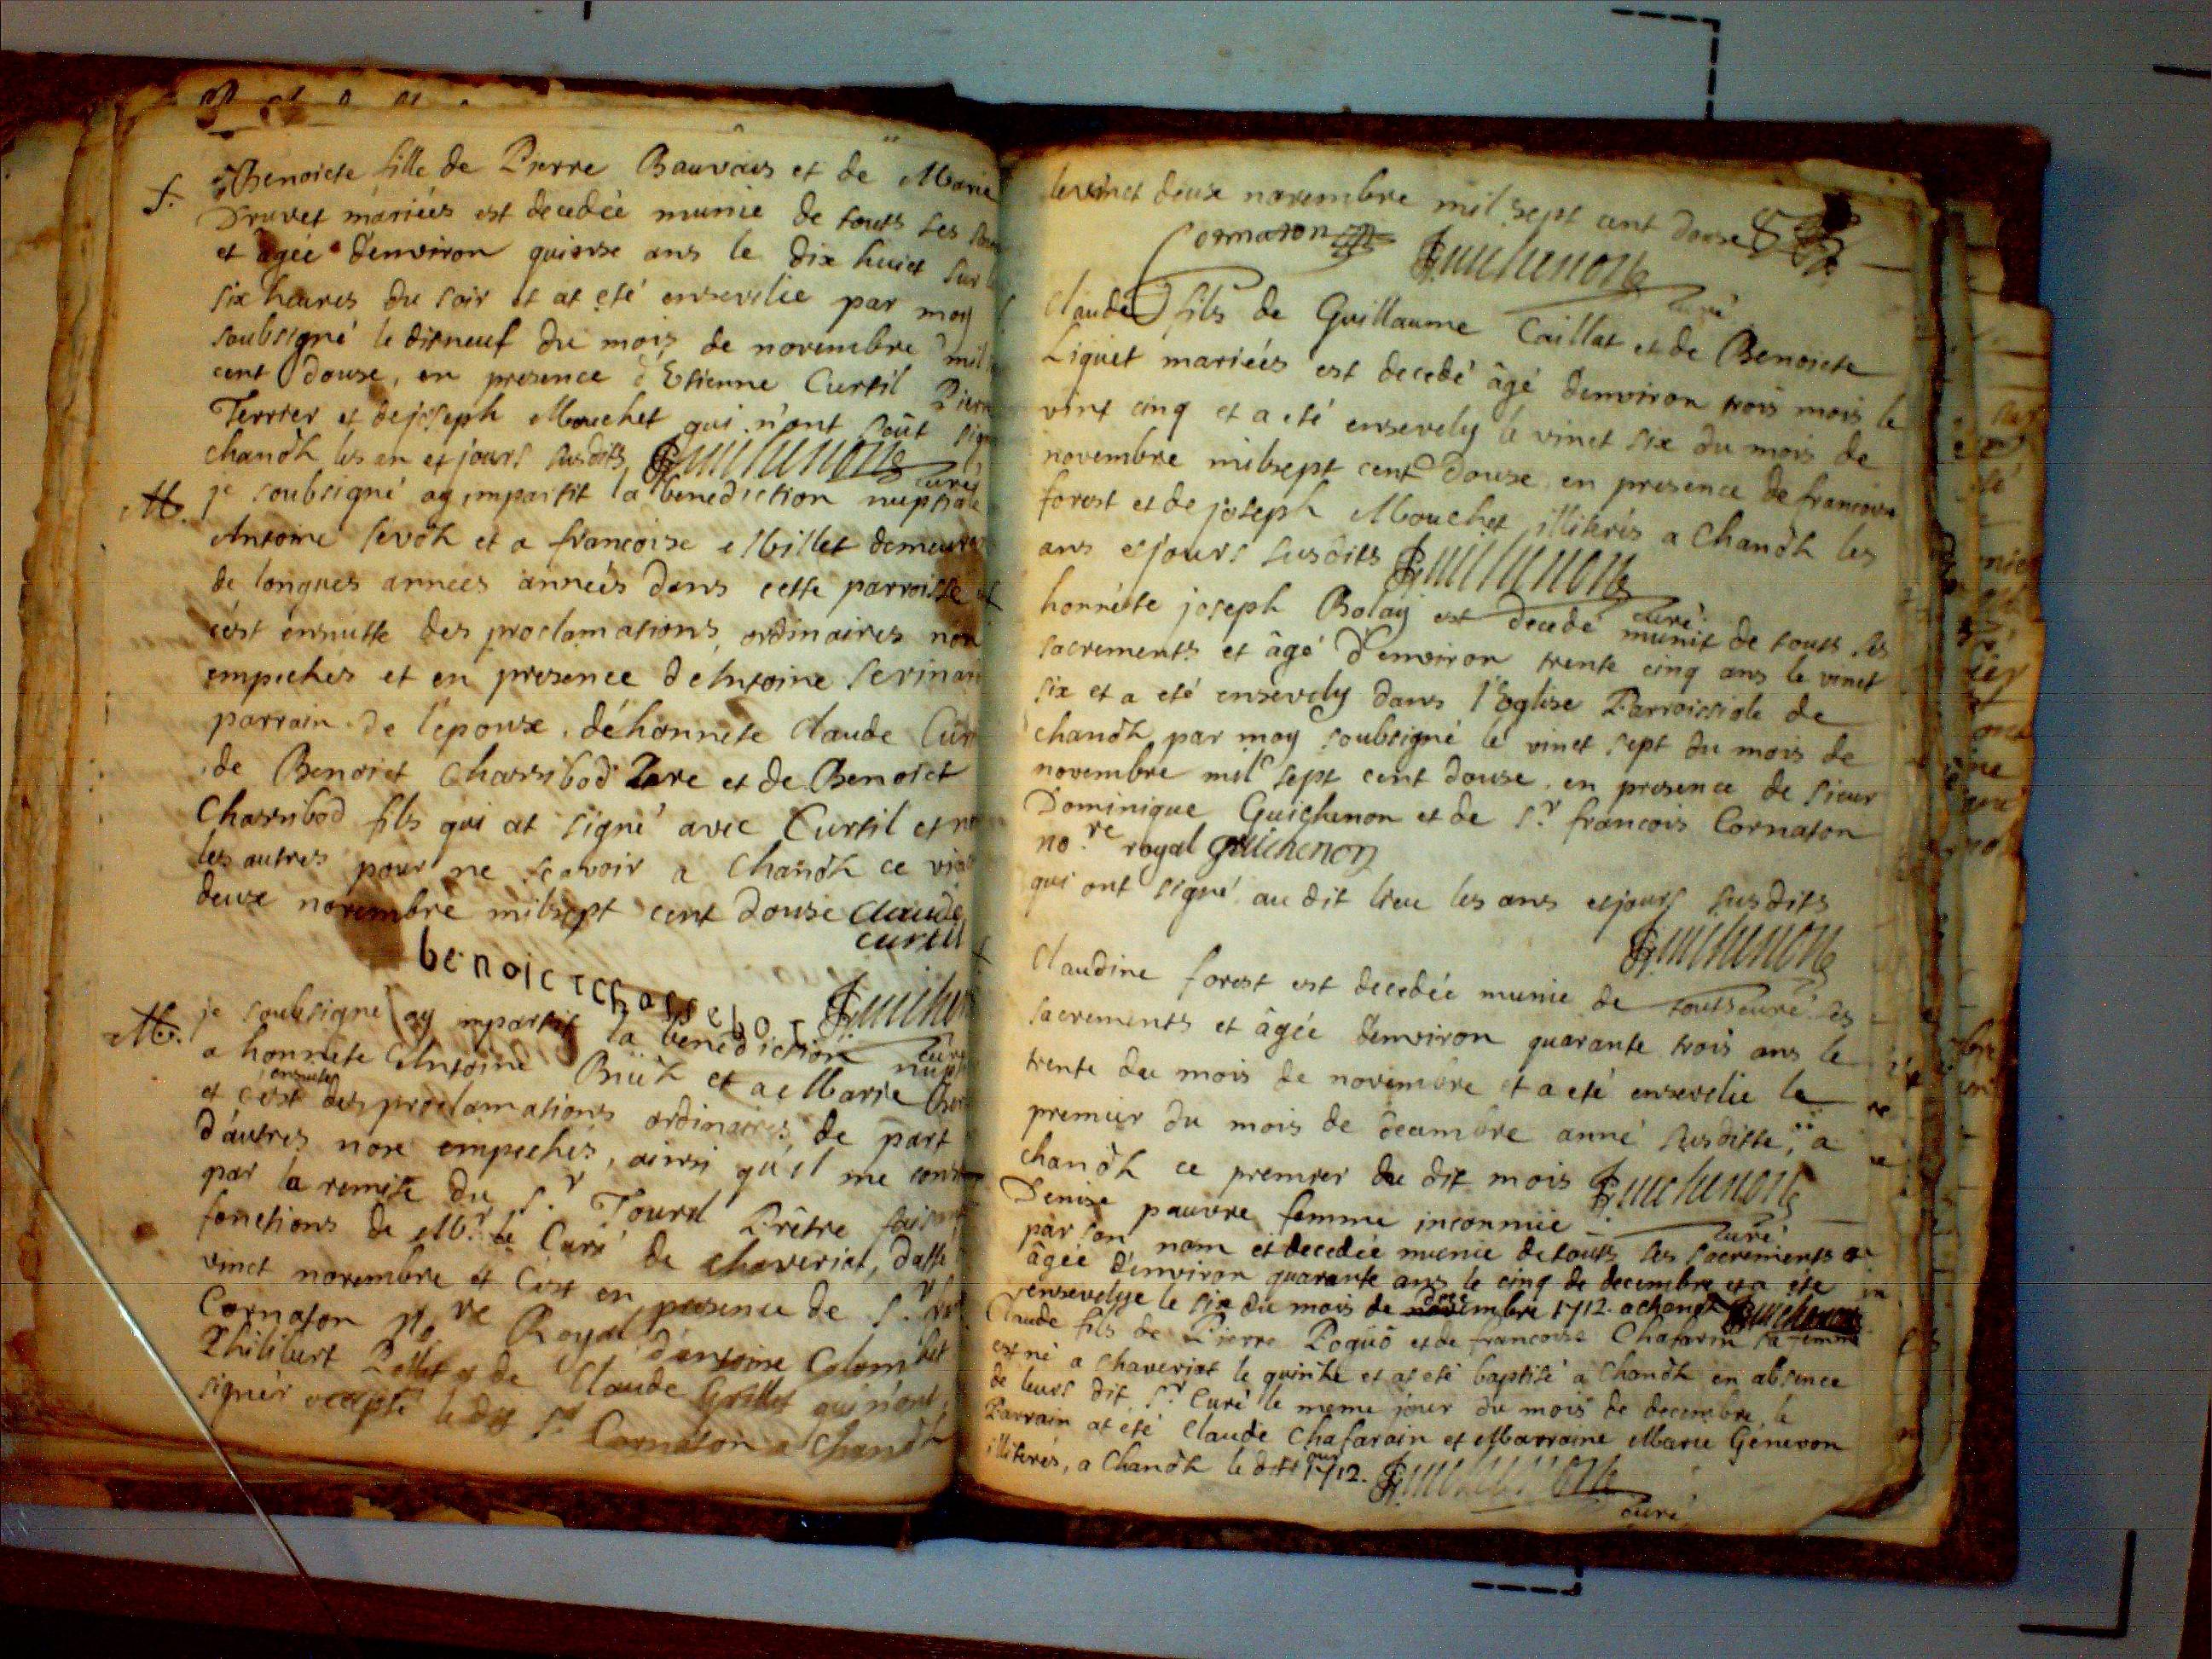 f. Benoicte fille de Pierre Bauvais et de Marie
Druvet mariées est decedée munie de touts ses
et âgée d'environ quinse ans le dix huict sur
six heures du soir et at eté ensevelie par moy
soubsigné le disneuf du mois de novembre mil
cent douse, en presence d'Etienne Curtil Pierre
Terrier et de joseph Mouchet qui n'ont sçût
chanoz les an et jours susdits Guichenon curé
M. je soubsigné ay impartit la benediction nuptiale
Antoine Sevoz et a francoise Millet
de longues années années dans cette parroisse
cést ensuitte des proclamations ordinaires non
empechés et en presence de Antoine
parrain de l'epouse, de honnete Claude
de Benoict Chassibod Pere et de Benoict
Chassibod fils qui at signé avec Curtil et
les autres pour ne scavoir a Chanoz ce
deuse novembre milsept cent douse Claude
curtil
benoictchassebot Guichenon
curé
M. je soubsigne ay impartit la benediction
a honnete Antoine et a Marie
et cést ensuite des proclamations ordinaires, de part
d'autres non empechés, ainsi qu'il me
par la remise du Sr. Prêtre
fonctions de Mr. le Curé de chaveriat, datte
vinct novembre et cést en presence de Sr.
Cornaton No.re Royal d'antoine
Philibert et de Claude Grillet qui n'ont
signér le dit Sr. Cornaton a Chanoz
le vinct deuse novembre mil sept cent douse
Cornaton Guichenon
curé
Claude fils de Guillaume Caillat et de Benoicte
Liquet mariées est decedé âgé denviron trois mois le
vint cinq et a eté ensevely le vinct six du mois de
novembre milsept cent douse en presence de francois
forest et de joseph Mouchet illiterés a Chanoz les
ans et jours susdits Guichenon
curé
honnéste joseph Bolay est decedé munit de touts ses
sacrements et âgé d'environ trente cinq ans le vinct
six et a eté ensevely dans l'Eglise Parroissiale de
chanoz par moy soubsigné le vinct sept du mois de
novembre mil sept cent douse, en presence de sieur
Dominique Guichenon et de Sr. francois Cornaton
no.re royal guichenon
qui ont signé au dit lieu les ans et jours susdits
Guichenon
curé
Claudine forest est decedée munie de touts ses
sacrements et âgée denviron quarante trois ans le
trente du mois de novembre et a eté ensevelie le
premier du mois de decembre anné susditte, a
chanoz ce premier du dit mois Guichenon
curé
Denise pauvre femme inconnüe
par son nom et decedée munie de touts ses sacrements
âgée d'environ quarante ans le cinq de decembre et a ete
ensevelye le six du mois de decembre 1712. a chanoz Guichenon
Claude fils de Pierre Poguö et de francoise Chafarin sa femme
est né a chaveriat le quinse et at eté baptisé a Chanoz en absence
de leurs dit Sr. Curé le meme jour du mois de decembre, le
Parrain at eté Claude Chafarain et Marraine Marie Genevon
illiterés, a Chanoz le dit jour 1712. Guichenon
curé